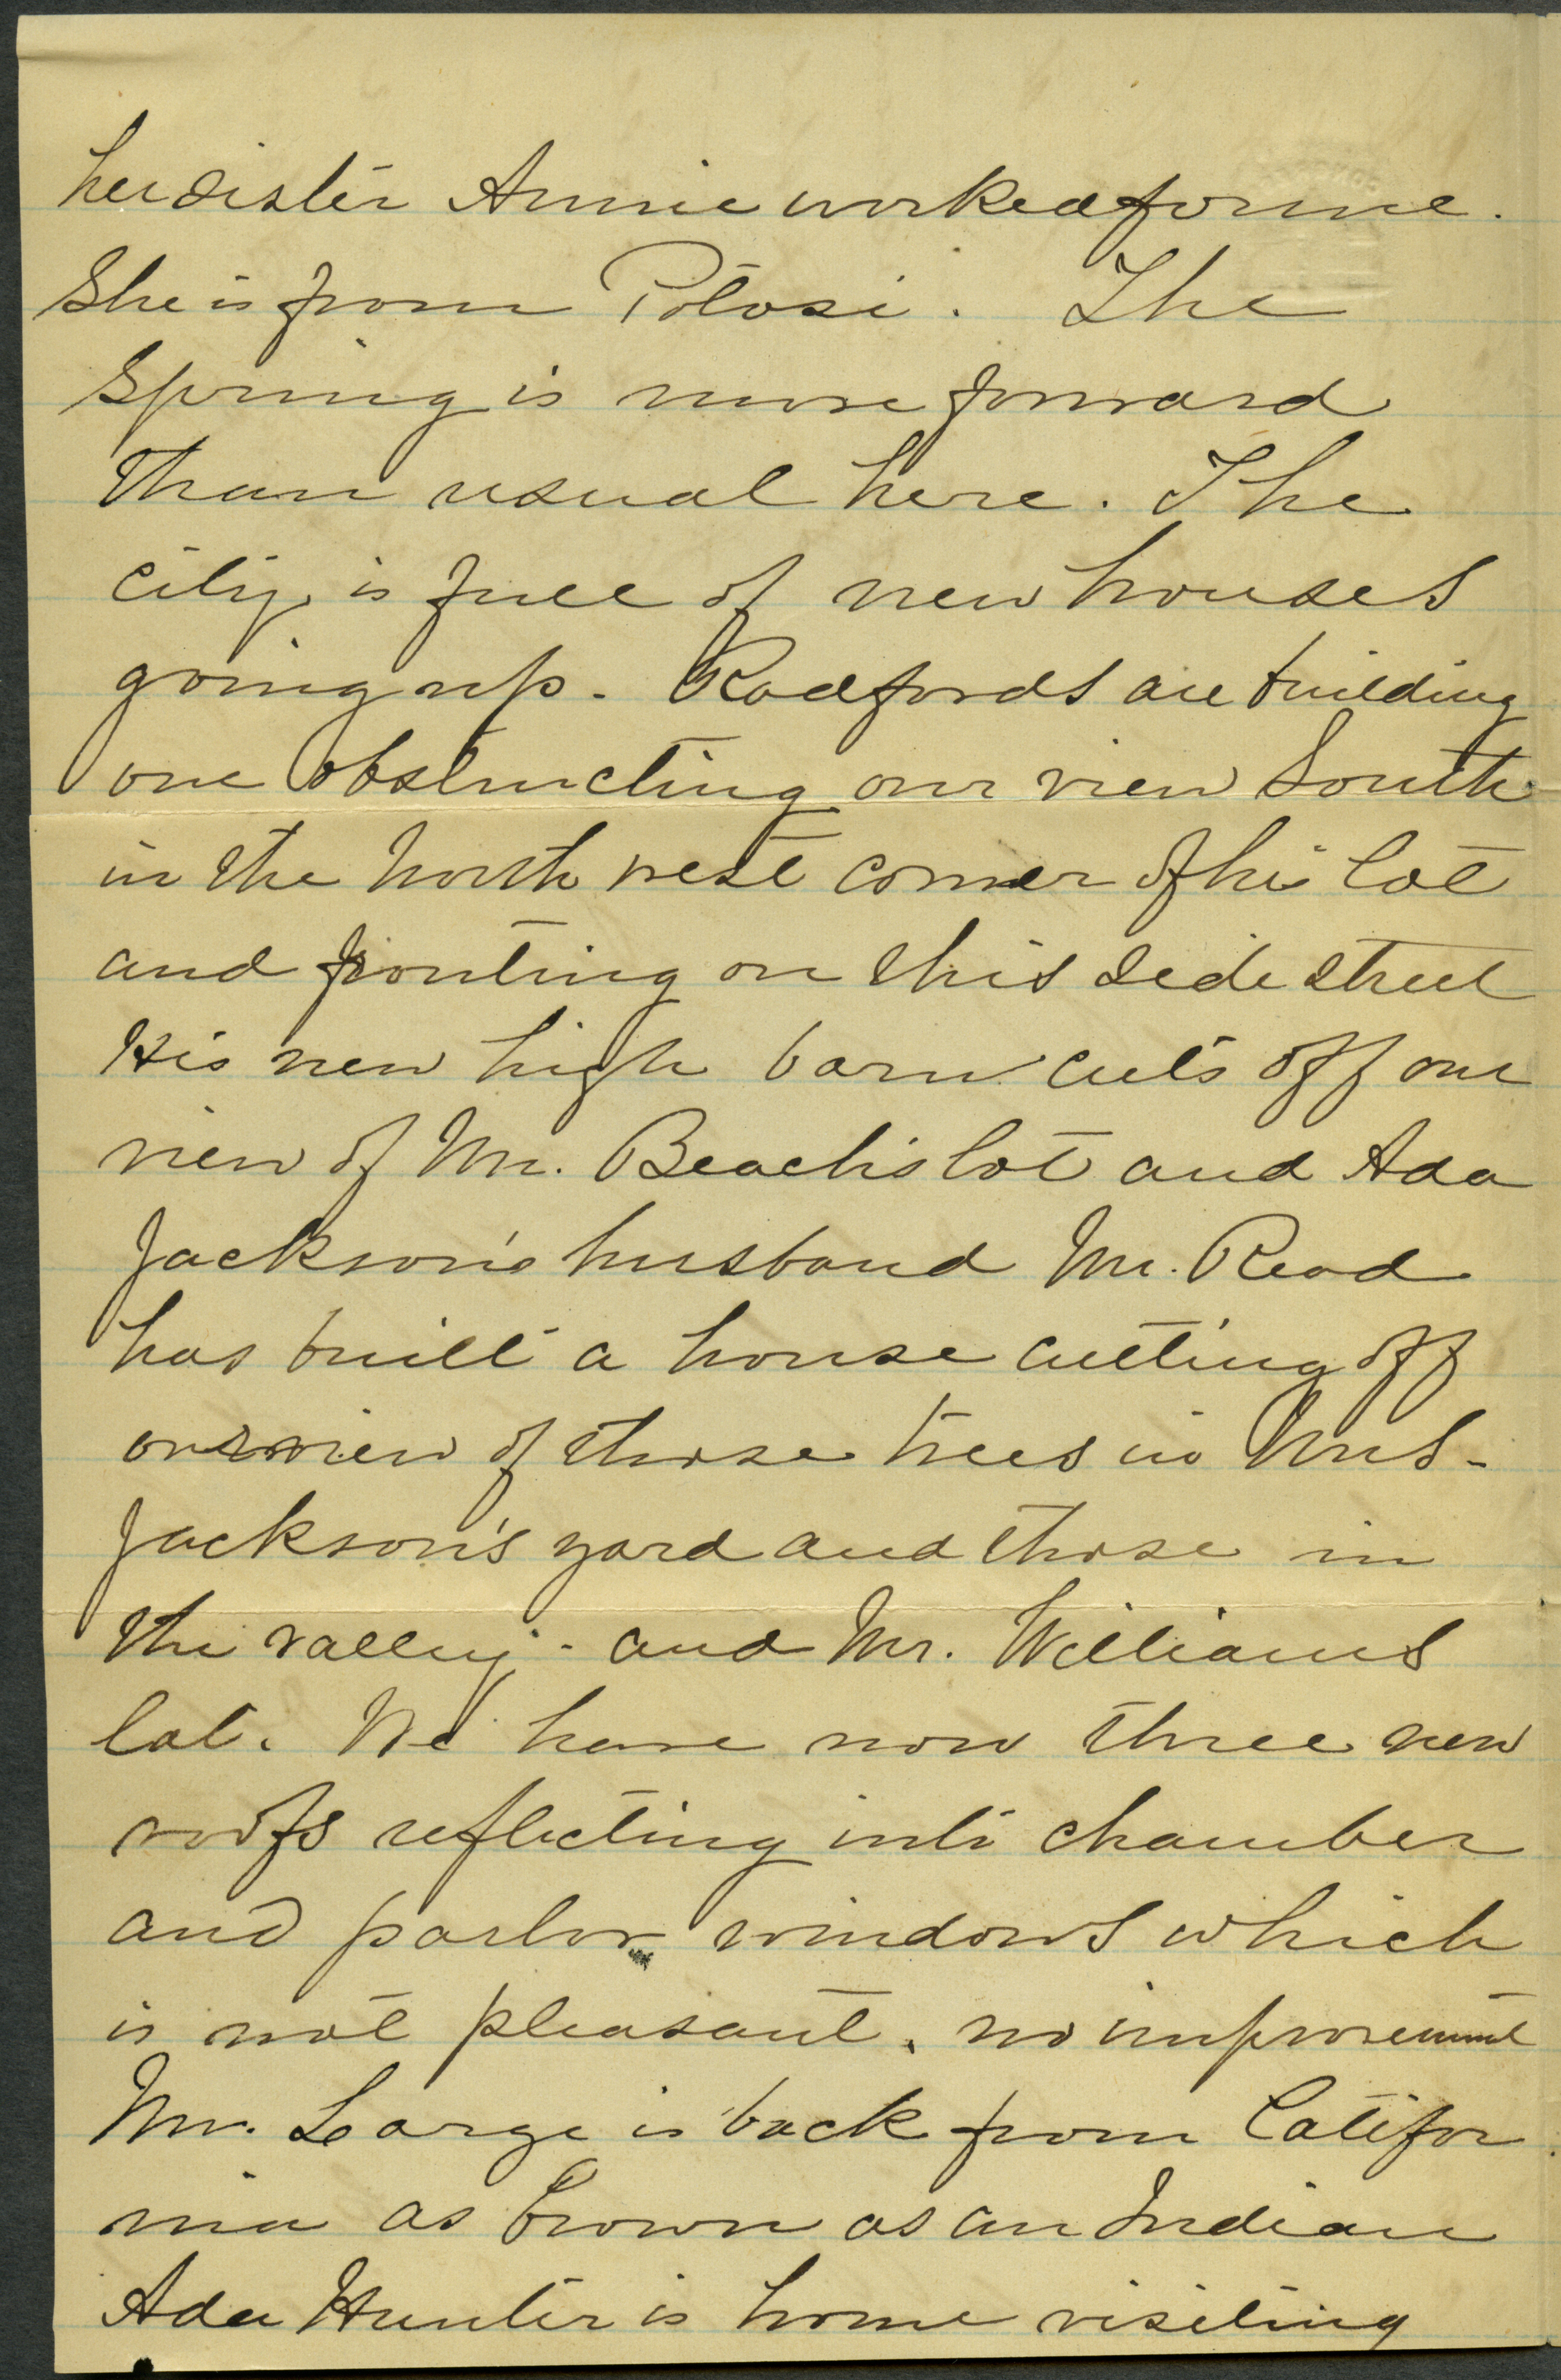 her sister Annie worked for me.
She is from Potosi. The
Spring is more forward
than usual here. The
city is full of new houses
going up. Radfords are building
one obstructing our view South
in the North west corner of his lot
and fronting on this side street
His new high barn cuts off our
view of Mr. Beach's lot and Ada
Jackson's husband Mr. Read
has built a house cutting off
our view of those trees in Mrs.
Jackson's yard and those in
the valley - and Mr. Williams
lot. We have now three new
roofs reflecting into chamber
and parlor windows which
is not pleasant. no improvement
Mr. Large is back from Califor
nia as brown as an Indian
Ada Hunter is home visiting